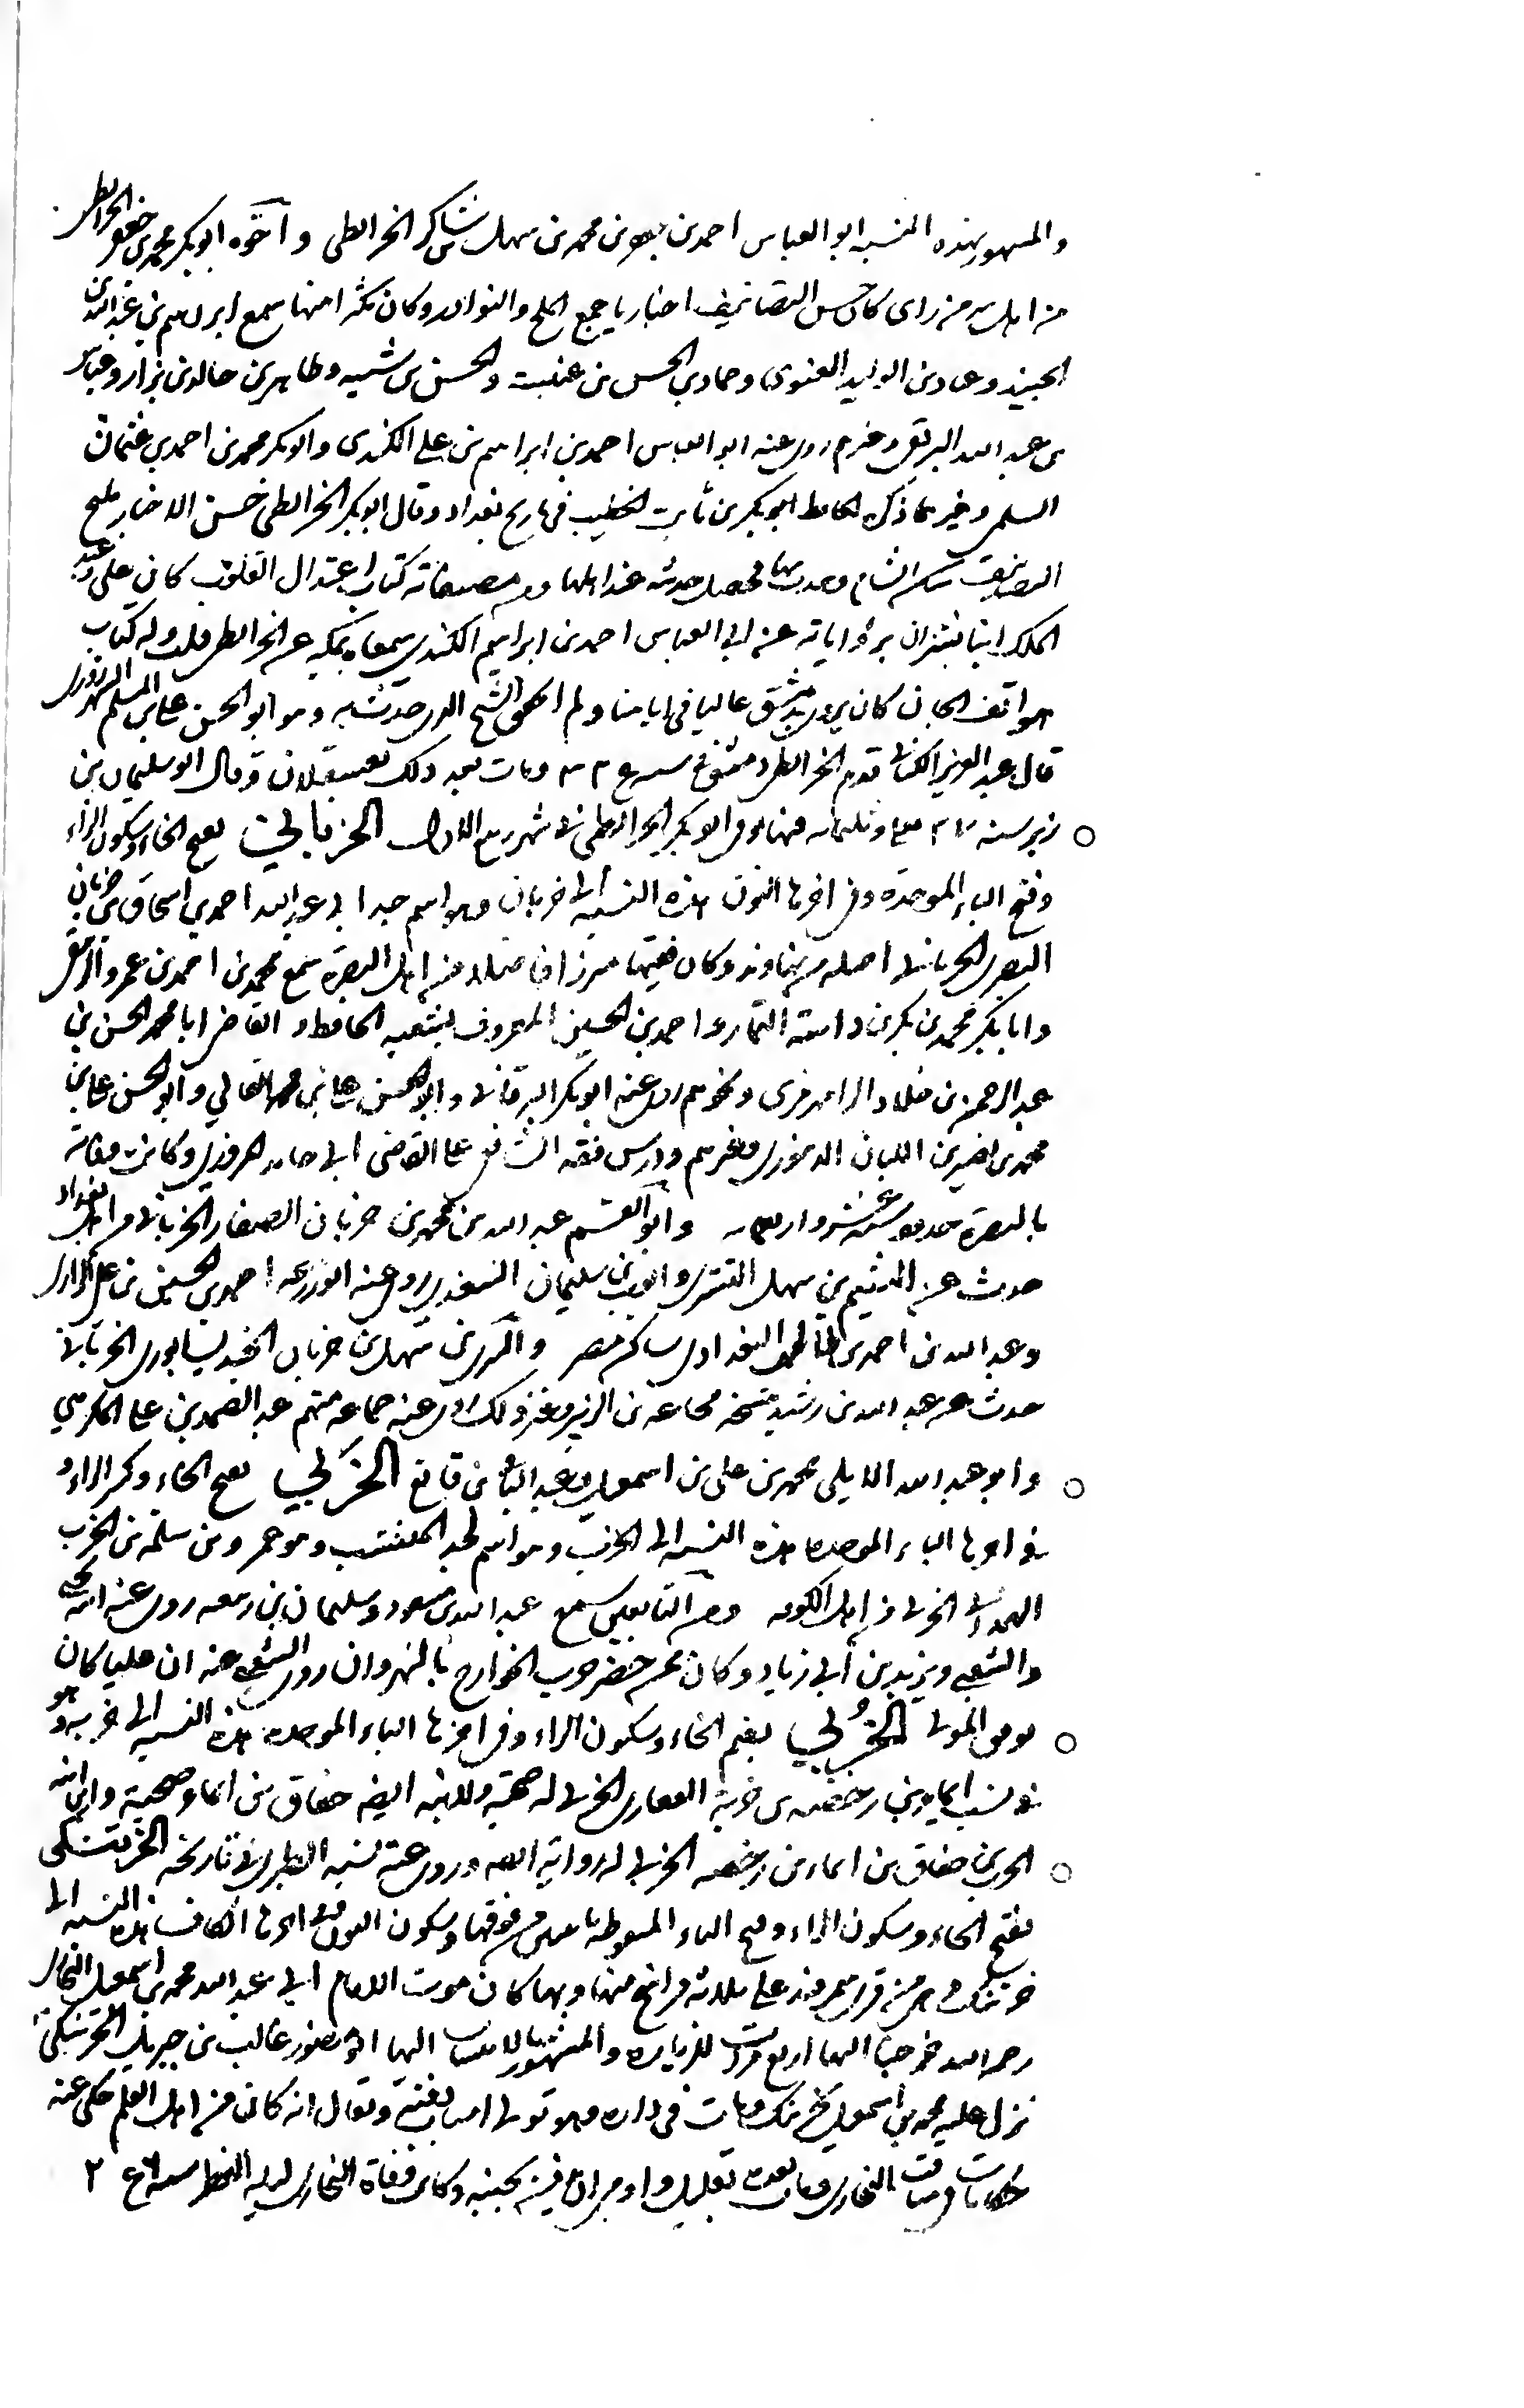 والمشهور بهذه النسبة ابو العباس احمد بن جعفر بن محمد بن سهل بن شاكر الخرائطي واخوه ابو بكر محمد بن جعفر الخرائطي
من اهل سر من راى كان حسن التصانيف اخباريا جمع الملح والنوادر وكان مكثرا منها سمع ابرهيم بن عبد الله بن
الجنيد وعباد بن الوليد الغنوي وحماد بن الحسن بن عنبسة والحسن بن شبيب وطاهر بن خالد بن نزار وعباس
بن عبد الله البرقفي وغيرهم روى عنه ابو العباس احمد بن ابراهيم بن علي الكندي وابو بكر محمد بن احمد بن عثمان
السلمي وغيرهما ذكره الحافظ ابو بكر بن ثابت الخطيب في تاريخ بغداد وقال ابو بكر الخرائطي حسن الاخبار مليح
التصانيف سكن الشام وحدث بها فحصل حديثه عند اهلها ومن مصنفاته كتاب اعتدال القلوب كان علي وعبد
الملك ابنا بشران يروياته عن ابي العباس احمد بن ابراهيم الكندي سمعاه بمكه عن الخرائطي قلت وله كتاب
هواتف الجان كان يروى بدمشق عاليا في ايامنا ولم الحق الشيخ الذي حدث به وهو ابو الحسن علي بن المسلم السهروردي
قال عبد العزيز الكتاني قدم الخرائطي دمشق في سنه ٣٢ ومات بعد ذلك بعسقلان وقال ابو سليمان بن
زبر سنه ٣٢٧ سبع وثلثمايه فيها توفي ابو بكر الخرائطي في شهر ربيع الاول الخرباني بفتح الخاء وسكون الراء
وفتح الباء الموحدة وفي اخرها النون هذه النسبة الى خربان وهو اسم جد ابي عبد الله احمد بن اسحاق بن خربان
البصري الخرباني اصله من نهاوند وكان فقيها مبرزا فاضلا من اهل البصرة سمع محمد بن احمد بن عمرو الزيبقي
وابا بكر محمد بن بكر بن داسة التمار واحمد بن الحسين المعروف بشعبه الحافظ والقاضي ابا محمد الحسن بن
عبد الرحمن بن خلاد الرامهرمزي ونحوهم روى عنه ابو بكر البرقاني وابو الحسن علي بن محمد الفالي وابو الحسن علي بن
محمد بن نصر بن اللبان الدينوري وغيرهم ودرس فقه الشافعي على القاضي ابي حامد المروزي وكانت وفاته
بالبصرة حدود سنه عشر واربعمايه وابو القسم عبد الله بن محمد بن خربان الصفار الخرباني من اهل بغداد
حدث عن الهيثم بن سهل التستري وايوب بن سليمان الصغدي روى عنه ابو زرعه احمد بن الحسين بن علي الرازي
وعبد الله بن احمد بن طالب البغدادي ساكن مصر والسري بن سهل بن خربان الجنديسابوري الخرباني
حدث عن عبد الله بن رشيد نسخة مجاعه بن الزبير وغير ذلك روى عنه جماعه منهم عبد الصمد بن علي المكرمي
وابو عبد الله الايلي محمد بن علي بن اسمعيل وعبد الباقي بن قانع الخربي بفتح الخاء وكسر الراء و
في اخرها الباء الموحدة هذه النسبه الى الخرب وهو اسم لجد المنتسب وهو عمرو بن سلمة بن الخرب
الهمداني الخربي من اهل الكوفه ومن التابعين سمع عبد الله بن مسعود وسلمان بن ربيعه روى عنه ابنه يحيى
والشعبي ويزيد بن ابي زياد وكان ممن حضر حرب الخوارج بالنهروان روى الشعبي عنه ان عليا كان
يوصي المولى الخربي بضم الخاء وسكون الراء وفي اخرها الباء الموحدة هذه النسبه الى خربه وهو
في نسب ايماء بن رحضه بن خربة الغفاري الخربي له صحبة ولابنه ايضا خفاف بن ايماء صحبة وابن ابنه
الحرث بن خفاف بن ايماء بن رحضه الخربي له رواية ايضا وروى عنه نسبه الطبري في تاريخه الخرتنكي
بفتح الخاء وسكون الراء وفتح التاء المنقوطة باثنتين من فوقها وسكون النون وفي اخرها الكاف هذه النسبه الى
خرتنك وهي من قرى سمرقند على ثلاثة فراسخ منها وبها كان موت الامام ابي عبد الله محمد بن اسمعيل البخاري
رحمه الله خرجنا اليها اربع مرات للزيارة والمشهور بالانتساب اليها ابو منصور غالب بن جبريل الخرتنكي
نزل عليه محمد بن اسمعيل بخرتنك ومات في داره وهو تولى اسباب دفنه ويقال انه كان من اهل العلم حكي عنه
حكايات ومات البخاري ومات بعده بقليل واوصى ان يدفن بجنبه وكان وفاة البخاري ليلة الفطر سنه ٢